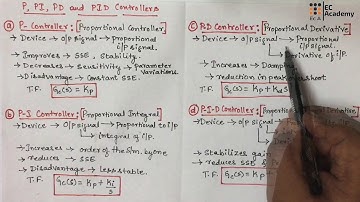 P, PI, PD and PID Controllers
EC Academy
a) P- Controller: [Proportional Controller]
→ Device → o/p signal → Proportional
i/p signal.
→ Improves → SSE, Stability.
→ Decreases → Sensitivity → Parameter
Variations.
→ Disadvantage → Constant SSE.
T.F. Gc(s) = Kp
b) P-I Controller: [Proportional Integral]
→ Device → o/p signal → Proportional to i/p
→ Integral of i/p.
→ Increases → order of the S/m. by one
→ reduces → SSE
→ Disadvantage → Less stable.
T.F. Gc(s) = Kp + Ki/s
c) P-D Controller: [Proportional Derivative]
→ Device → o/p signal → Proportional
i/p signal.
Derivative of i/p.
→ Increases → Damp
→ reduction in peak shoot
T.F. Gc(s) = Kp + Kd
d) P-I-D Controller: [Prop
→ Device → o/p signal
→ Stabilizes gai
→ reduces SSE
T.F. Gc(s) = Kp +